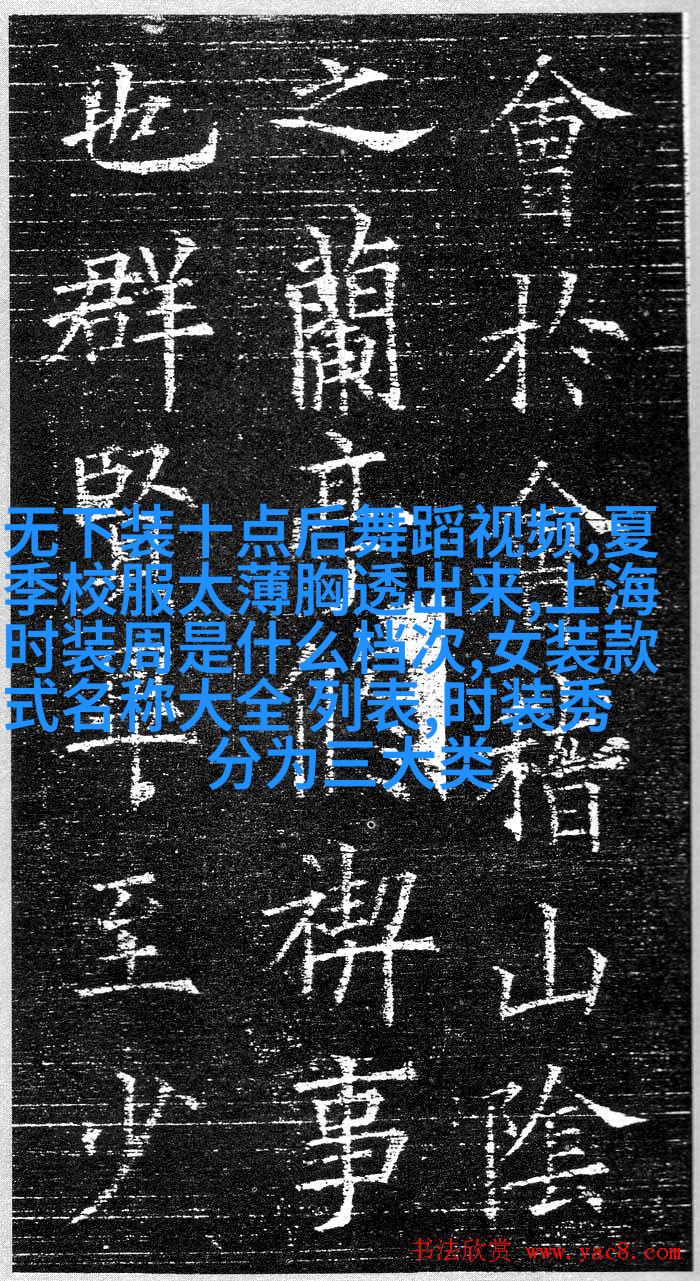 會於會稽山陰
之蘭亭禊事
也群賢畢至少
无下装十点后舞蹈视频,夏
季校服太薄胸透出来,上海
时装周是什么档次,女装款
式名称大全 列表,时装秀
分为三大类
书法欣赏 www.yac8.com